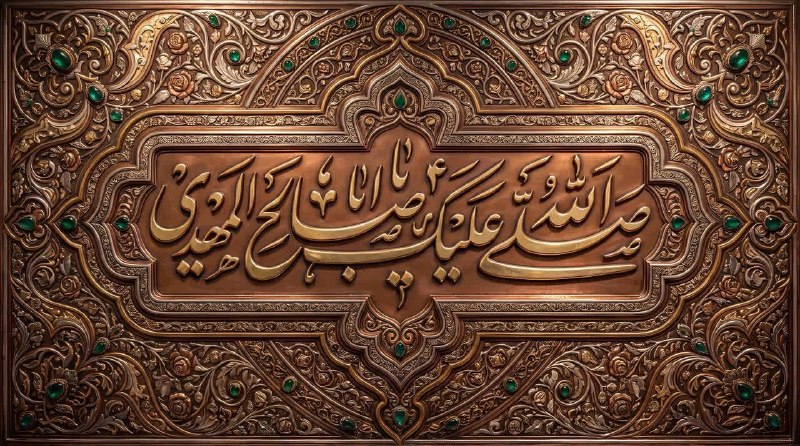 صلی الله علیک یا ابا صالح المهدی